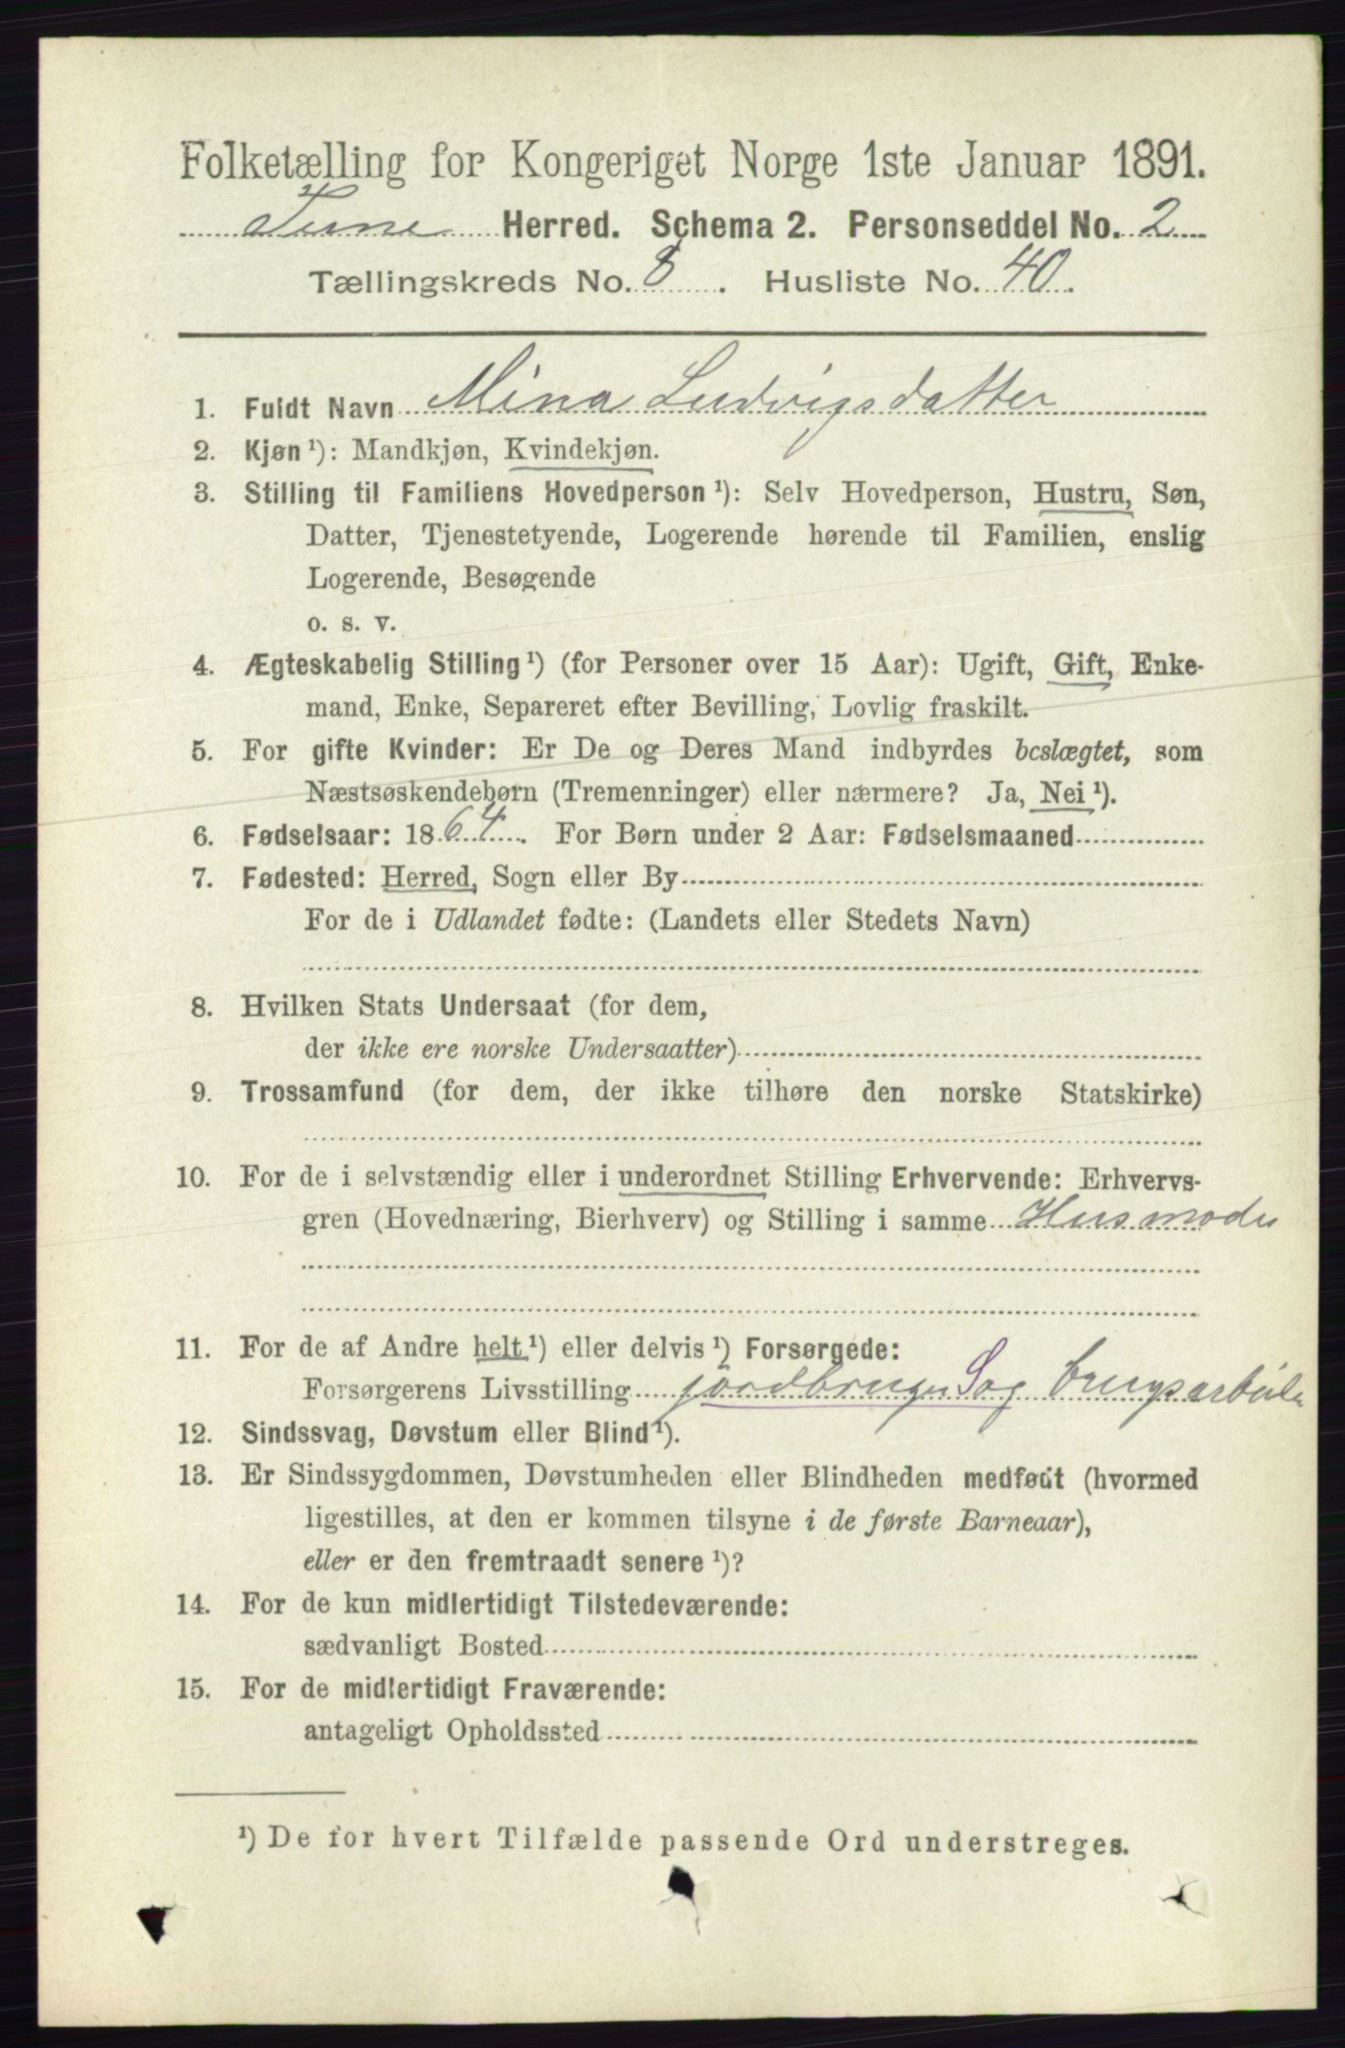 Folketælling for Kongeriget Norge 1ste Januar 1891.
Tune Herred. Schema 2. Personseddel No. 2
Tællingskreds No. 8. Husliste No. 40.
1. Fuldt Navn Mina Ludvigsdatter
2. Kjøn¹): Mandkjøn, Kvindekjøn.
3. Stilling til Familiens Hovedperson¹): Selv Hovedperson, Hustru, Søn,
Datter, Tjenestetyende, Logerende hørende til Familien, enslig
Logerende, Besøgende
o. s. v.
4. Ægteskabelig Stilling¹) (for Personer over 15 Aar): Ugift, Gift, Enke-
mand, Enke, Separeret efter Bevilling, Lovlig fraskilt.
5. For gifte Kvinder: Er De og Deres Mand indbyrdes beslægtet, som
Næstsøskendebørn (Tremenninger) eller nærmere? Ja, Nei¹).
6. Fødselsaar: 1864. For Børn under 2 Aar: Fødselsmaaned
7. Fødested: Herred, Sogn eller By
For de i Udlandet fødte: (Landets eller Stedets Navn)
8. Hvilken Stats Undersaat (for dem,
der ikke ere norske Undersaatter)
9. Trossamfund (for dem, der ikke tilhøre den norske Statskirke)
10. For de i selvstændig eller i underordnet Stilling Erhvervende: Erhvervs-
gren (Hovednæring, Bierhverv) og Stilling i samme Husmoder
11. For de af Andre helt¹) eller delvis¹) Forsørgede:
Forsørgerens Livsstilling jordbruger Sag brugsarbeider
12. Sindssvag, Døvstum eller Blind¹).
13. Er Sindssygdommen, Døvstumheden eller Blindheden medfødt (hvormed
ligestilles, at den er kommen tilsyne i de første Barneaar),
eller er den fremtraadt senere¹)?
14. For de kun midlertidigt Tilstedeværende:
sædvanligt Bosted
15. For de midlertidigt Fraværende:
antageligt Opholdssted
¹) De for hvert Tilfælde passende Ord understreges.